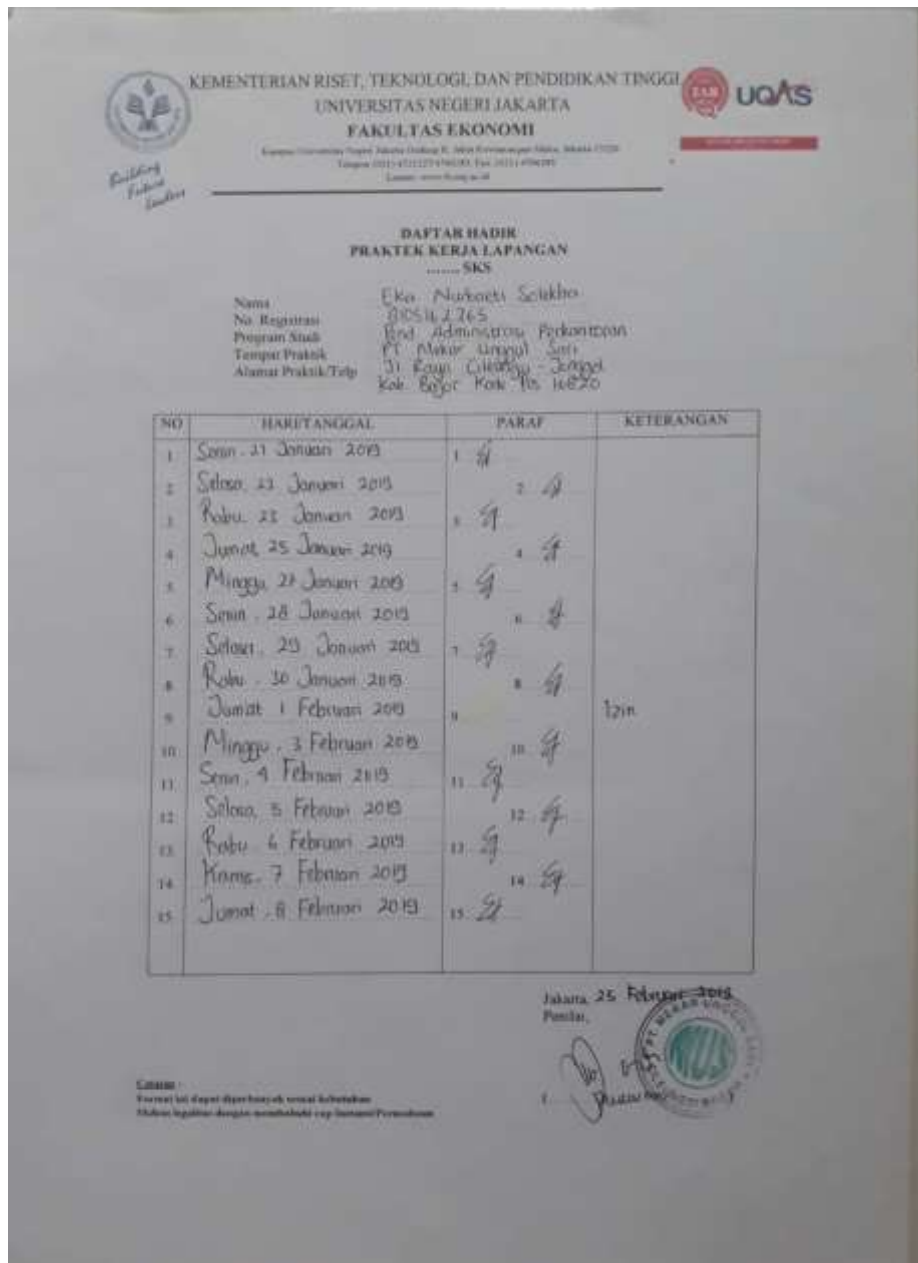 KEMENTERIAN RISET, TEKNOLOGI, DAN PENDIDIKAN TINGGI
UNIVERSITAS NEGERI JAKARTA
FAKULTAS EKONOMI
UQAS
Building
Future
Leaders
DAFTAR HADIR
PRAKTEK KERJA LAPANGAN
....... SKS
Nama Eka Nurbaeti Solikha
No. Registrasi 8105162265
Program Studi Pend Administrasi Perkantoran
Tempat Praktik PT Mekar Unggul Sari
Alamat Praktik/Telp Jl Raya Cileungsi - Jonggol
Kab. Bogor Kode Pos 16820
NO HARI/TANGGAL PARAF KETERANGAN
1 Senin. 21 Januari 2019 1
2 Selasa, 22 Januari 2019 2
3 Rabu. 23 Januari 2019 3
4 Jumat, 25 Januari 2019 4
5 Minggu, 27 Januari 2019 5
6 Senin, 28 Januari 2019 6
7 Selasa, 29 Januari 2019 7
8 Rabu. 30 Januari 2019 8
9 Jumat 1 Februari 2019 9 Izin
10 Minggu, 3 Februari 2019 10
11 Senin, 4 Februari 2019 11
12 Selasa, 5 Februari 2019 12
13 Rabu 6 Februari 2019 13
14 Kamis. 7 Februari 2019 14
15 Jumat, 8 Februari 2019 15
Jakarta, 25 Februari 2019
Penilai,
PT MEKAR UNGGUL SARI
MUS
Catatan :
Format ini dapat diperbanyak sesuai kebutuhan
Mohon legalitas dengan membubuhi cap Instansi/Perusahaan